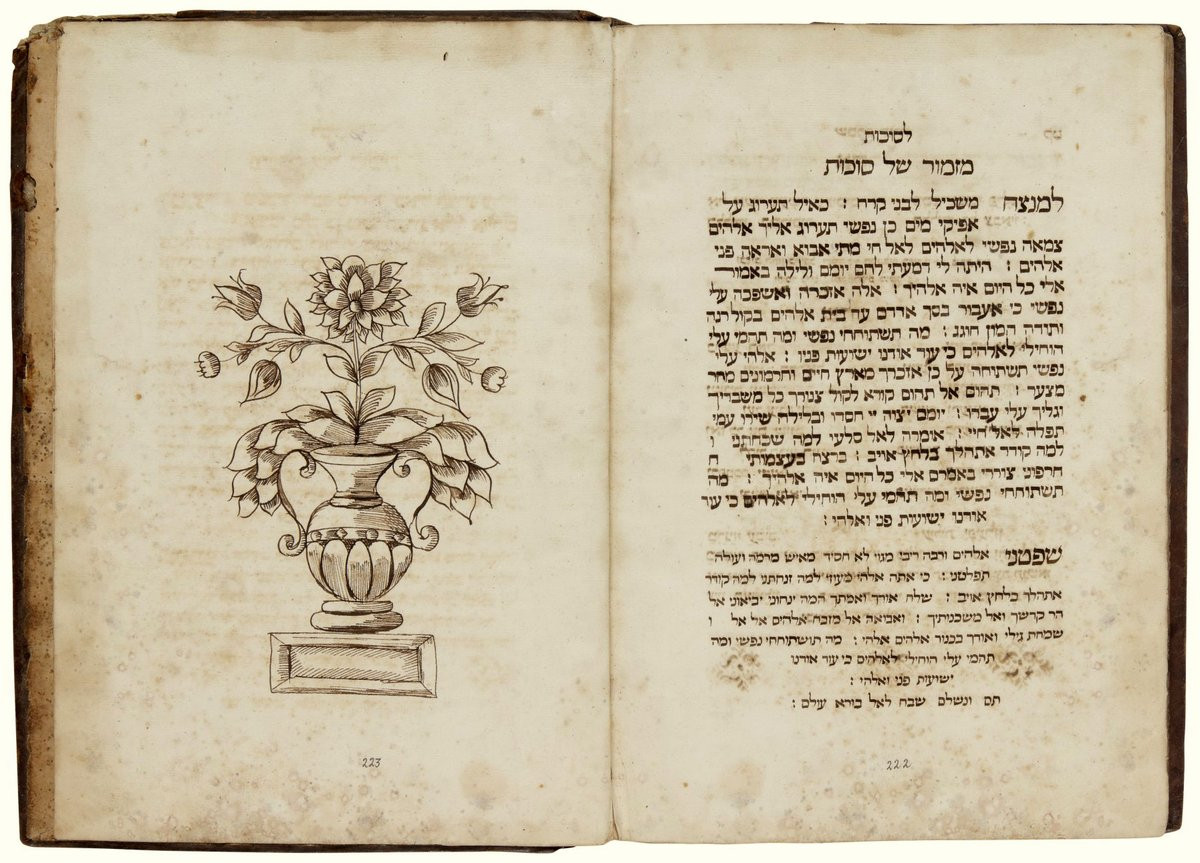 לסיכות
מזמור של סוכות
למנצח משכיל לבני קרח : כאיל תערוג על
אפיקי מים כן נפשי תערוג אליך אלהים
צמאה נפשי לאלהים לאל חי מתי אבוא ואראה פני
אלהים : היתה לי דמעתי לחם יומם ולילה באמור
אלי כל היום איה אלהיך : אלה אזכרה ואשפכה עלי
נפשי כי אעבור בסך אדדם עד בית אלהים בקול רנה
ותודה המון חוגג : מה תשתוחחי נפשי ומה תהמי עלי
הוחילי לאלהים כי עוד אודנו ישועות פניו : אלהי עלי
נפשי תשתוחה על כן אזכרך מארץ חיים וחרמונים מהר
מצער : תהום אל תהום קורא לקול צנורך כל משבריך
וגליך עלי עברו : יומם יציה יי חסדו ובלילה שירו עמי
תפלה לאל חיי : אומרה לאל סלעי למה שכחתני ו
למה קודר אתהלך בלחץ אויב : ברצח בעצמותי ח
חרפוני צוררי באמרם אלי כל היום איה אלהיך : מה
תשתוחחי נפשי ומה תהמי עלי הוחילי לאלהים כי עוד
אודנו ישועות פני ואלהי :
שפטני אלהים ורבה ריבי מגוי לא חסיד מאיש מרמה ועולה
תפלטני : כי אתה אלהי מעוזי למה זנחתני למה קודר
אתהלך בלחץ אויב : שלח אורך ואמתך המה ינחוני יביאוני אל
הר קדשך ואל משכנותיך : ואביאה אל מזבח אלהים אל אל ו
שמחת גילי ואודך בכנור אלהים אלהי : מה תושתוחחי נפשי ומה
תהמי עלי הוחילי לאלהים כי עוד אודנו
ישועות פני ואלהי :
תם ונשלם שבח לאל בורא עולם :
222
223